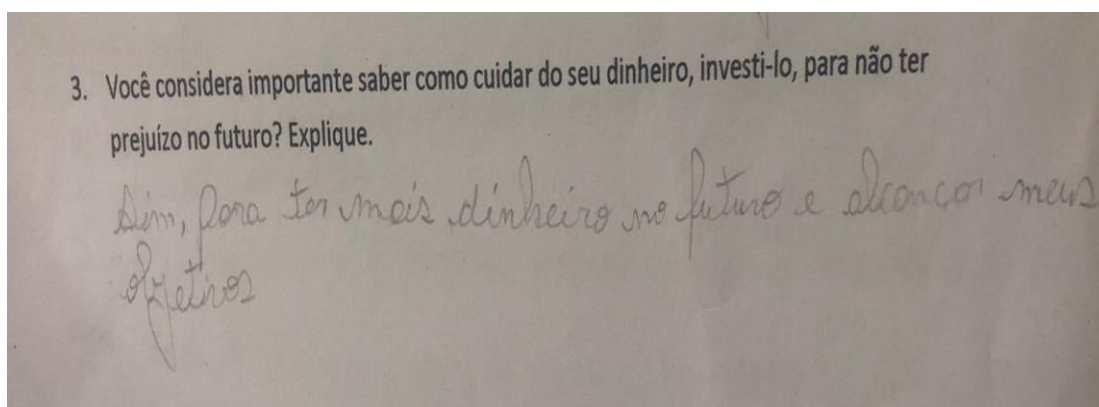 3. Você considera importante saber como cuidar do seu dinheiro, investi-lo, para não ter
prejuízo no futuro? Explique.
Sim, para ter mais dinheiro no futuro e alcançar meus
objetivos